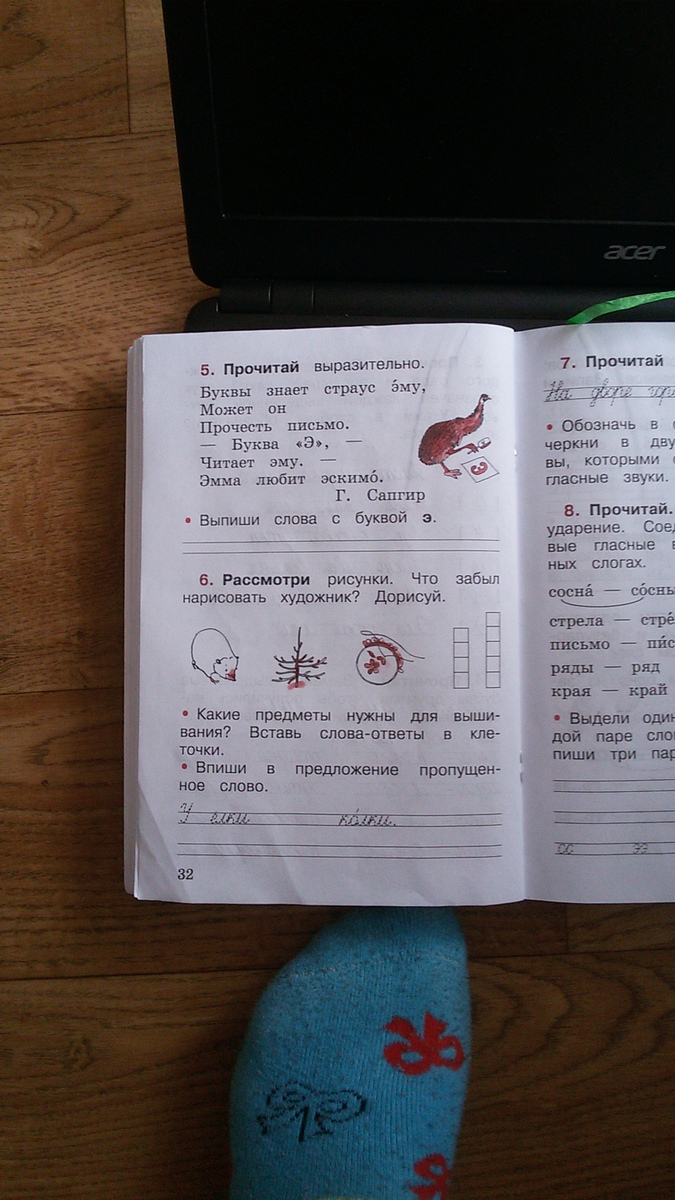 acer
5. Прочитай выразительно.
Буквы знает страус э́му,
Может он
Прочесть письмо.
— Буква «Э», —
Читает эму. —
Эмма любит эскимо́.
Г. Сапгир
• Выпиши слова с буквой э.
6. Рассмотри рисунки. Что забыл
нарисовать художник? Дорисуй.
• Какие предметы нужны для выши-
вания? Вставь слова-ответы в кле-
точки.
• Впиши в предложение пропущен-
ное слово.
У ёлки ко́лки.
32
7. Прочитай
На дворе
• Обозначь в
черкни в дву
вы, которыми
гласные звуки.
8. Прочитай.
ударение. Соед
вые гласные в
ных слогах.
сосна́ — со́сны
стрела — стре́
письмо — пи́с
ряды — ряд
края — край
• Выдели один
дой паре сло
пиши три пар
ээ